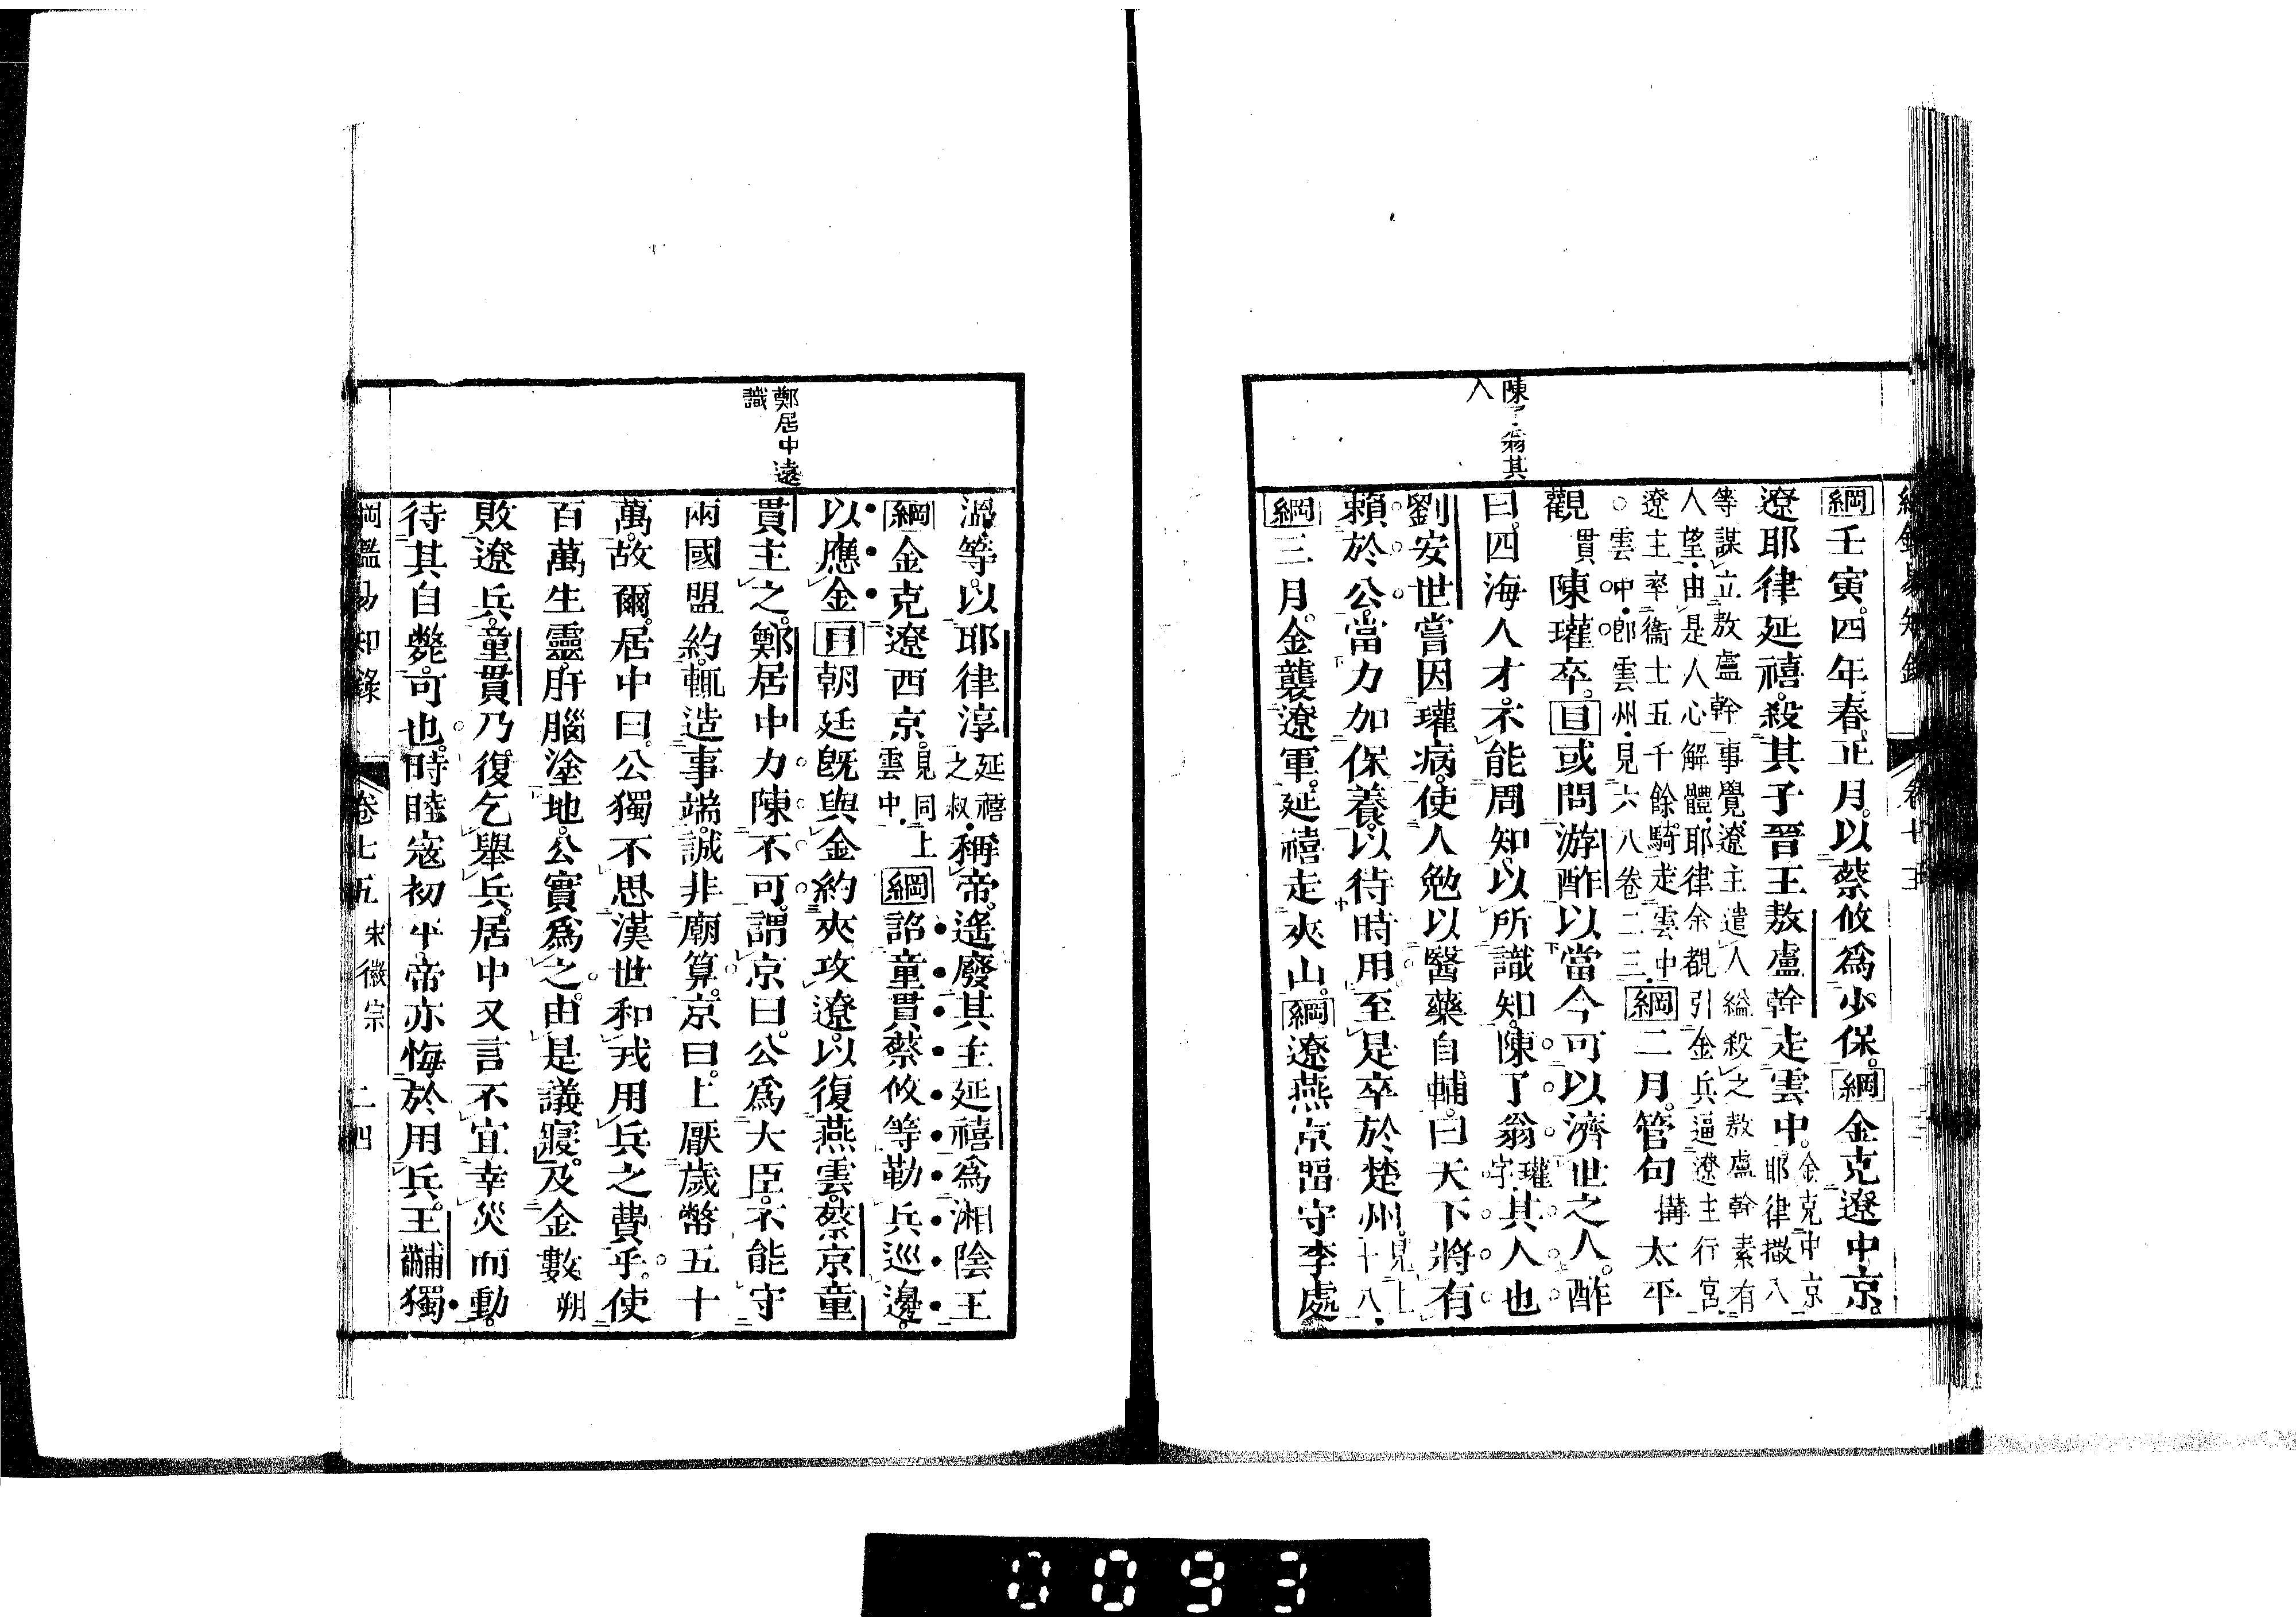 陳了翁其
人
綱壬寅。四年春正月。以蔡攸爲少保。綱金克遼中京。
遼耶律延禧。殺其子晉王敖盧幹走雲中。金克中京耶律撒八
等謀立敖盧幹事覺。遼主遣人縊殺之敖盧幹素有
人望。由是人心解體。耶律余覩引金兵逼遼主行宮。
遼主率衞士五千餘騎走雲中。
○雲中。卽雲州。見六八卷二三。
綱二月。管句太平
觀陳瓘卒。目或問游酢以當今可以濟世之人。酢
曰。四海人才。不能周知。以所識知。陳了翁瓘字。其人也
劉安世嘗因瓘病。使人勉以醫藥自輔。曰天下將有
賴於公。當力加保養。以待時用。至是卒於楚州。見上十八。
綱三月。金襲遼軍。延禧走夾山。綱遼燕京留守李處
溫等。以耶律淳延禧之叔。稱帝。遙廢其主延禧爲湘陰王
綱金克遼西京。見同上雲中。綱詔童貫蔡攸等勒兵巡邊。
以應金目朝廷既與金約夾攻遼。以復燕雲。蔡京童
鄭居中遠
識
貫主之。鄭居中力陳不可。謂京曰。公爲大臣。不能守
兩國盟約。輒造事端。誠非廟算。京曰。上厭歲幣五十
萬。故爾。居中曰。公獨不思漢世和戎用兵之費乎。使
百萬生靈。肝腦塗地。公實爲之。由是議寢。及金數朔
敗遼兵。童貫乃復乞舉兵。居中又言不宜幸災而動。
待其自斃。可也。時睦寇初平。帝亦悔於用兵。王黼獨
綱鑑易知錄 卷七五 宋徽宗 二四